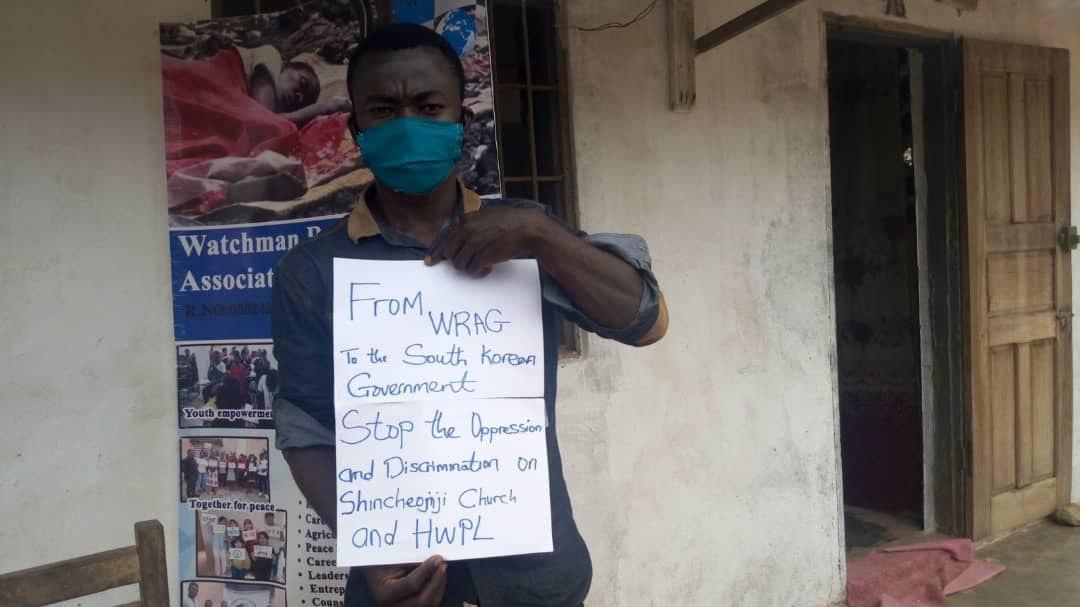 Watchman
Associat
Youth empowerme
Together for peace
Agric
Peace
Caree
Leader
Entrep
Coun
From WRAG
To the South Korean
Government
Stop the Oppression
and Discrimination on
Shincheojnji Church
and HWPL